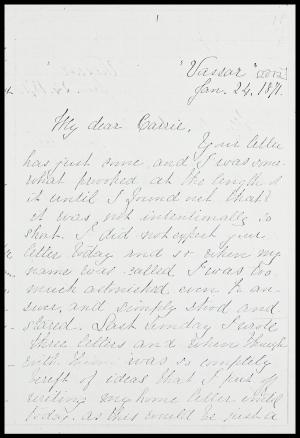 "Vassar"
Jan. 24. 1871.
My dear Carrie,
Your letter
has just come, and I was some-
what provoked at the length of
it until I found out that
it was, not intentionally so
short. I did not expect your
letter today and so when my
name was called I was too
much astonished, even to an-
swer, and simply stood and
stared. Last Sunday I wrote
three letters and when through
with them was so completely
bereft of ideas that I put off
writing my home letter until
today, as this would be just a